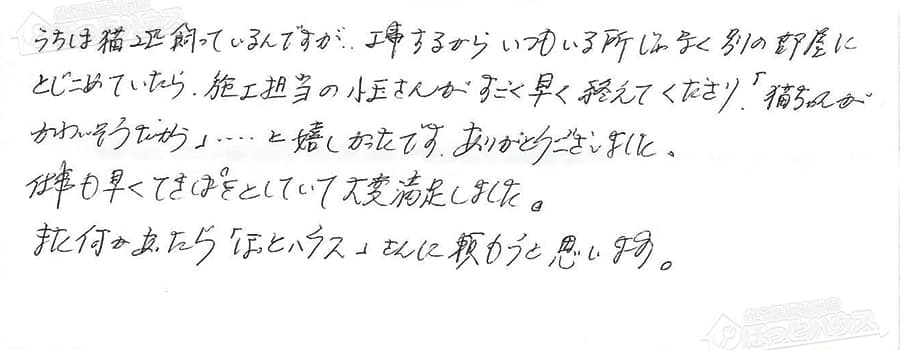 うちは猫2匹飼っているんですが、工事するからいつもいる所じゃなく別の部屋に
とじこめていたら、施工担当の小玉さんがすごく早く終えてくださり、「猫ちゃんが
かわいそうだから」‥‥と嬉しかったです。ありがとうございました。
仕事も早くてきぱきとしていて大変満足しました。
また何かあったら「ほっとハウス」さんに頼もうと思います。
ほっとハウス
ほっとハウス